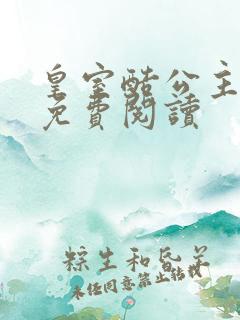 皇室酷公主
免費閱讀
粽生和昏羊
未经同意禁止转载